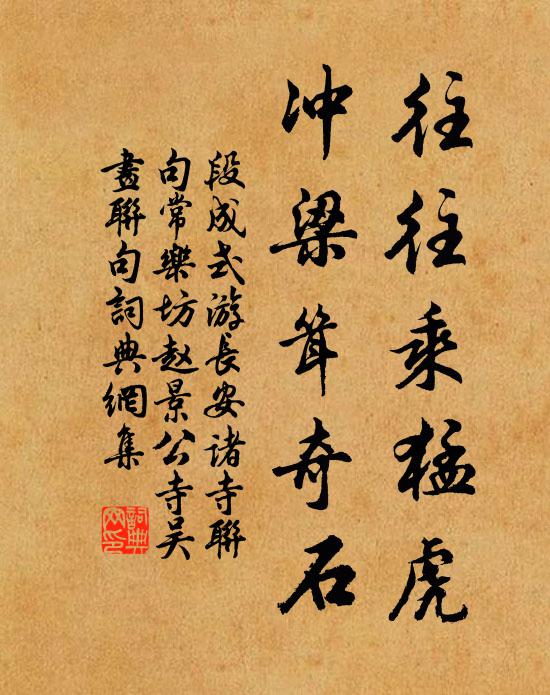 往往乘猛虎
冲梁耸奇石
段成式游长安诸寺聯
句常樂坊赵景公寺吴
畫聯句詞典網集